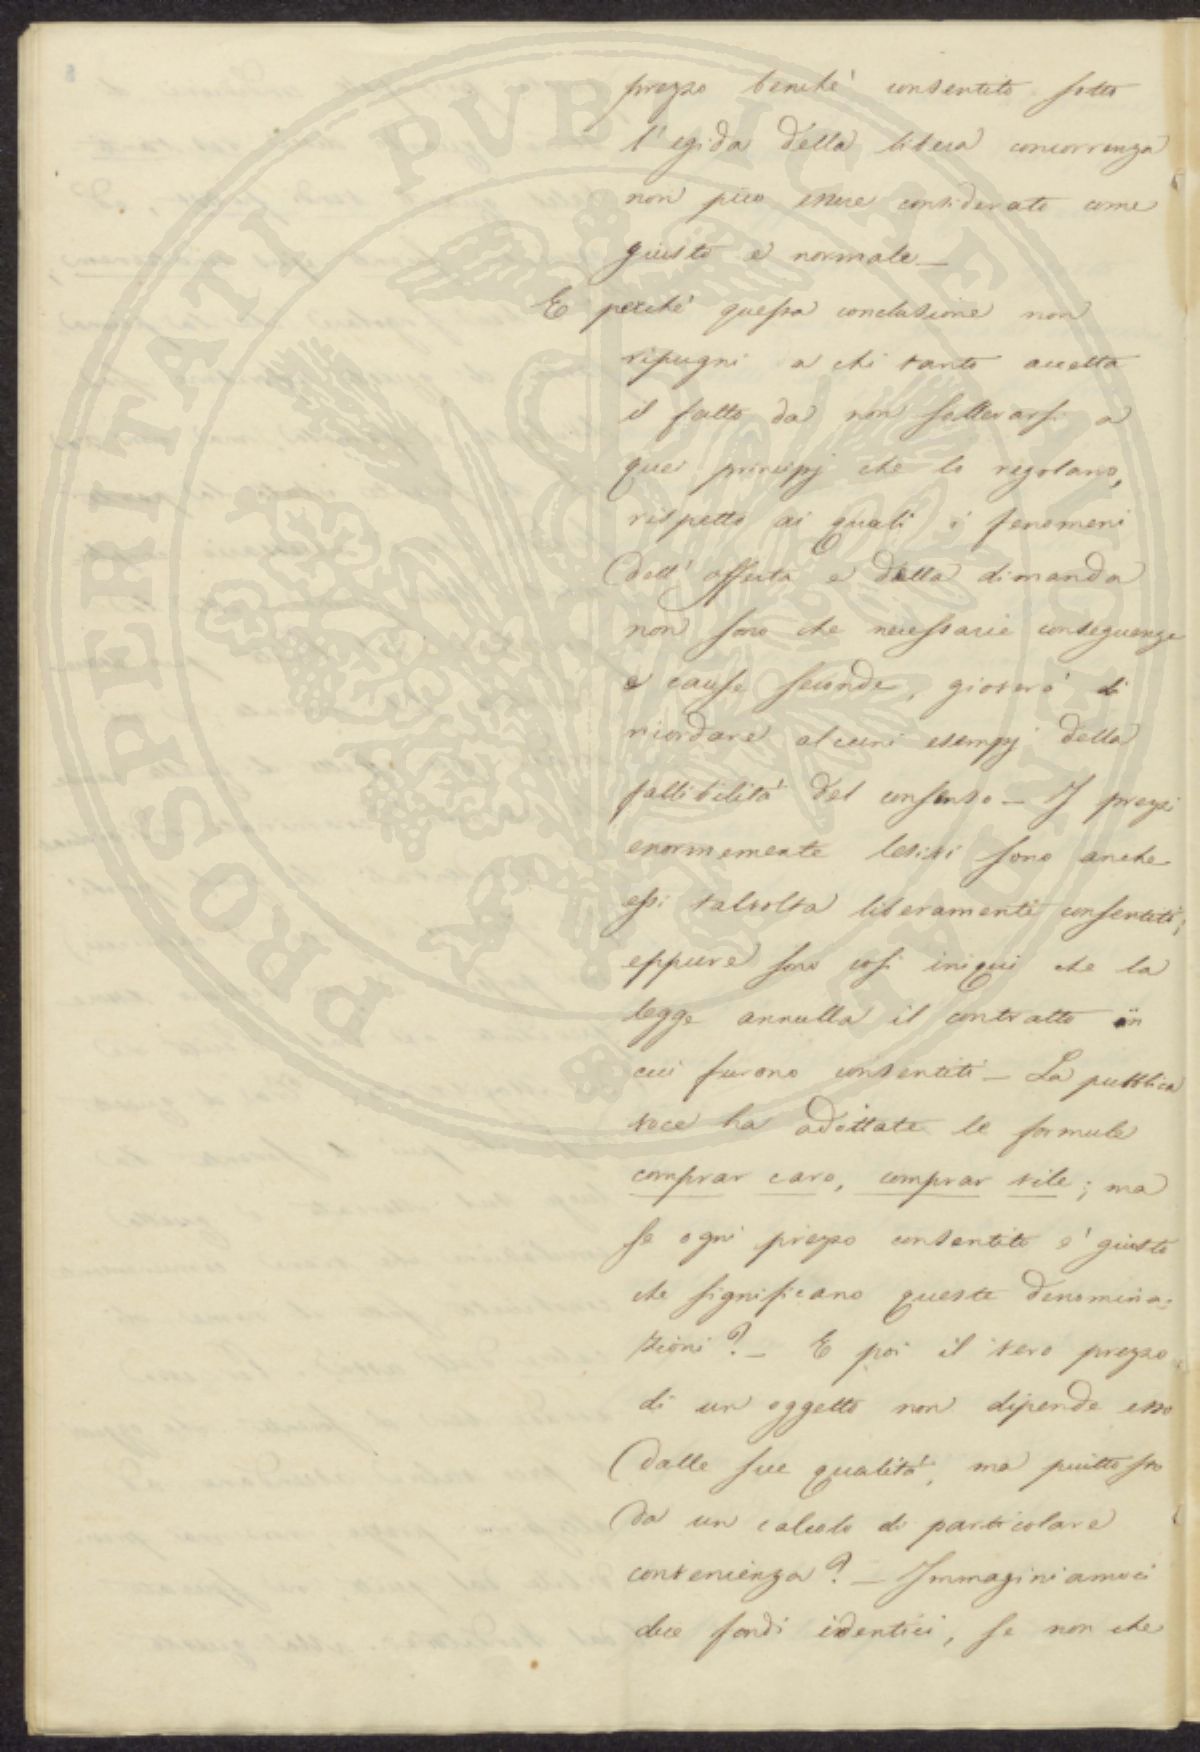 prezzo benchè consentito sotto
l'egida della libera concorrenza
non può essere considerato come
giusto e normale —
E perchè questa conclusione non
ripugni a chi tanto accetta
il fatto da non sollevarsi a
quei principj che lo regolano,
rispetto ai quali i fenomeni
dell'offerta e della dimanda
non sono che necessarie conseguenze
e cause seconde, gioverà di
ricordare alcuni esempj della
fallibilità del consenso — I prezzi
enormemente lesivi sono anche
essi talvolta liberamente consentiti;
eppure sono così iniqui che la
legge annulla il contratto in
cui furono consentiti — La pubblica
voce ha adottate le formule
comprar caro, comprar vile; ma
se ogni prezzo consentito è giusto
che significano queste denomina=
zioni? — E poi il vero prezzo
di un oggetto non dipende esso
dalle sue qualità, ma piuttosto
da un calcolo di particolare
convenienza? — Immaginiamoci
due fondi identici, se non che
PROSPERITATI PVBLICAE AVGENDAE